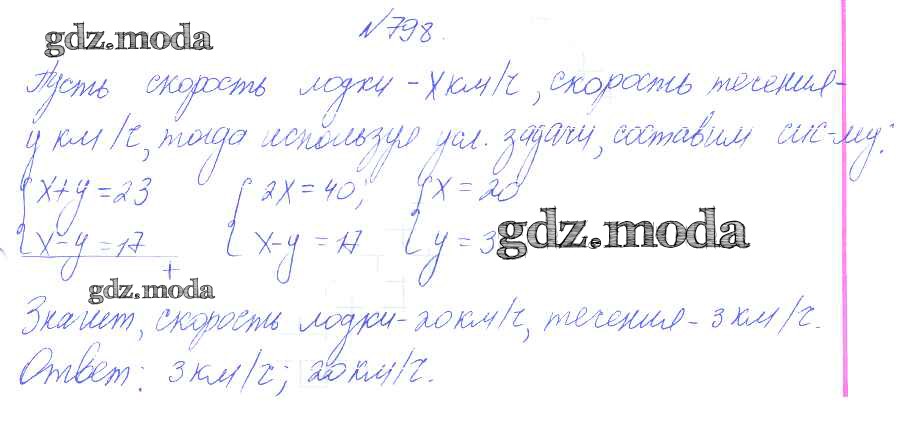 №798.
gdz.moda
Пусть скорость лодки - х км/ч, скорость течения -
у км/ч, тогда используя усл. задачи, составим сис-му:
{ х+у=23 { 2х=40; { х=20
{ х-у=17 { х-у=17 { у=3 gdz.moda
+
gdz.moda
Значит, скорость лодки - 20 км/ч, течения - 3 км/ч.
Ответ: 3 км/ч; 20 км/ч.